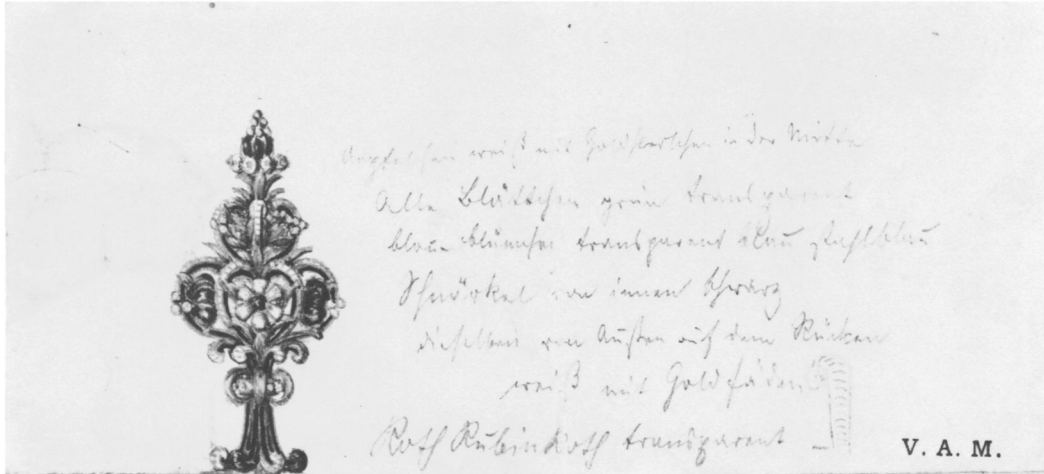 weiß mit Goldkerlchen in der Mitte
Alle Blättchen grün transparent
blaue Blümchen transparent blau stahlblau
Schnörkel von innen schwarz
dieselben von Außen auf dem Rücken
weiß mit Goldfäden
Roth Rubinroth transparent
V. A. M.